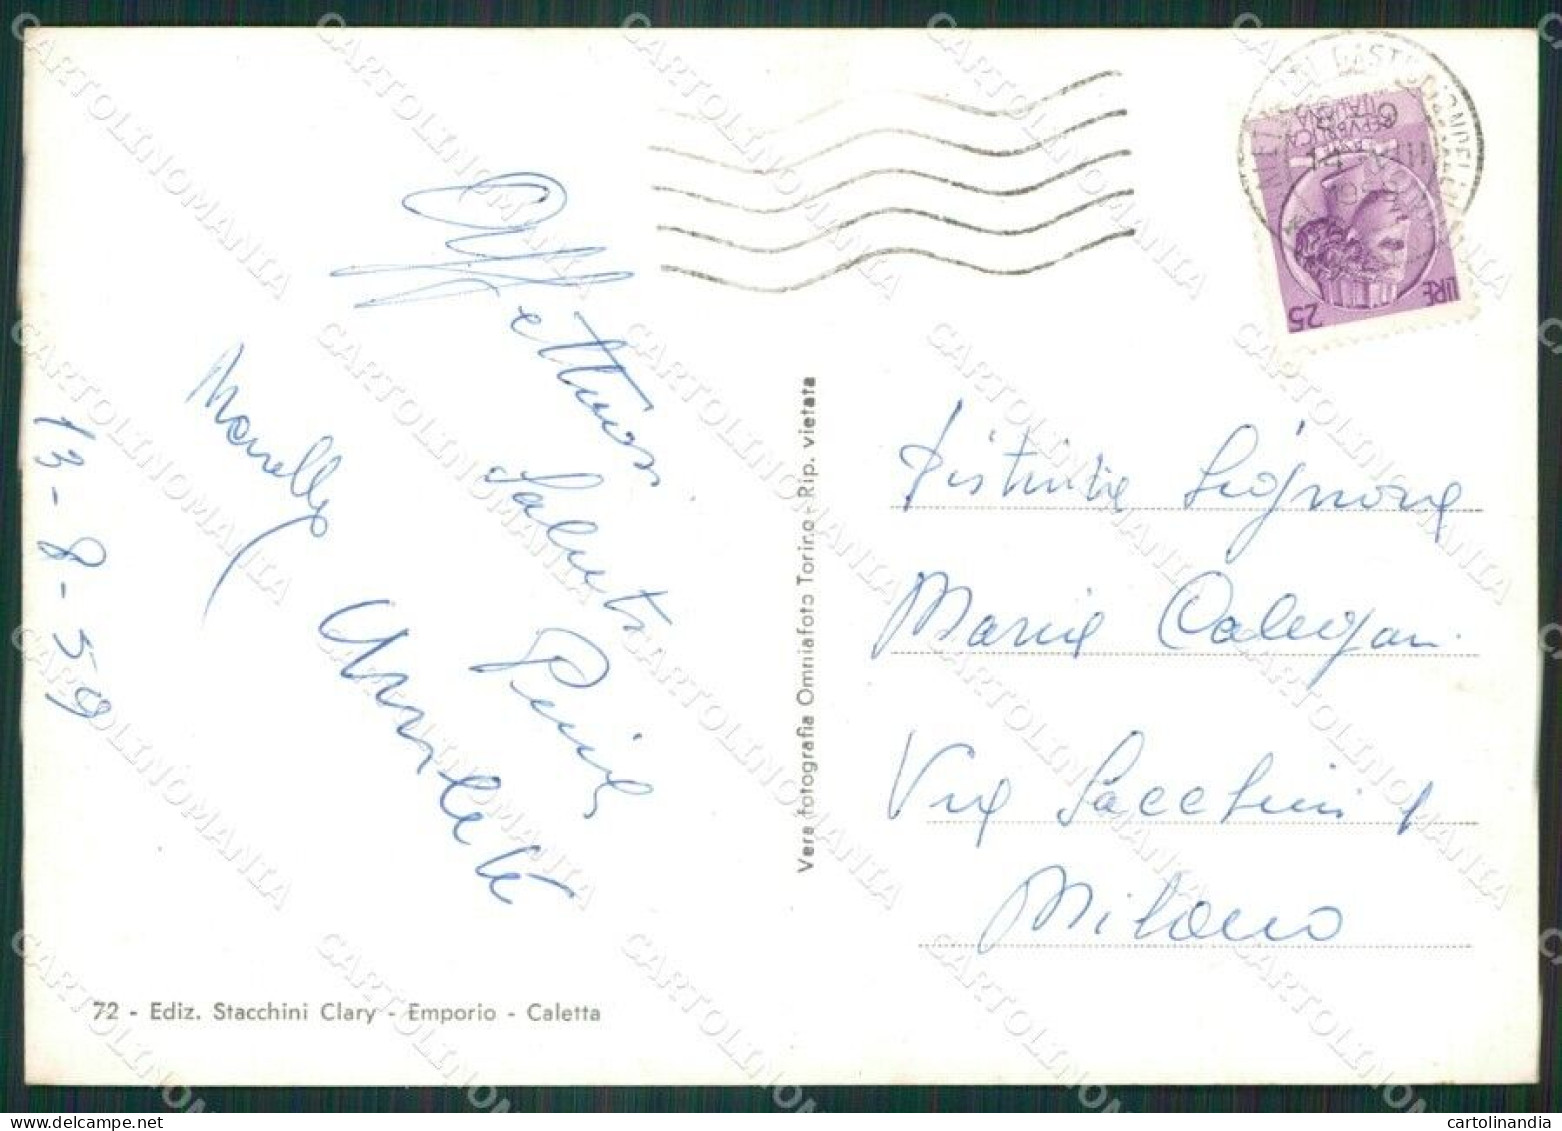 Affettuosi
Saluti
Marcello
13-8-59
72 - Ediz. Stacchini Clary - Emporio - Caletta
Vera fotografia Omniafoto Torino - Rip. vietata
REPVBBLICA
ITALIANA
LIRE 25
Distinta Signora
Maria
Via Sacchini 1
Milano
CARTOLINOMANIA
cartolinandia